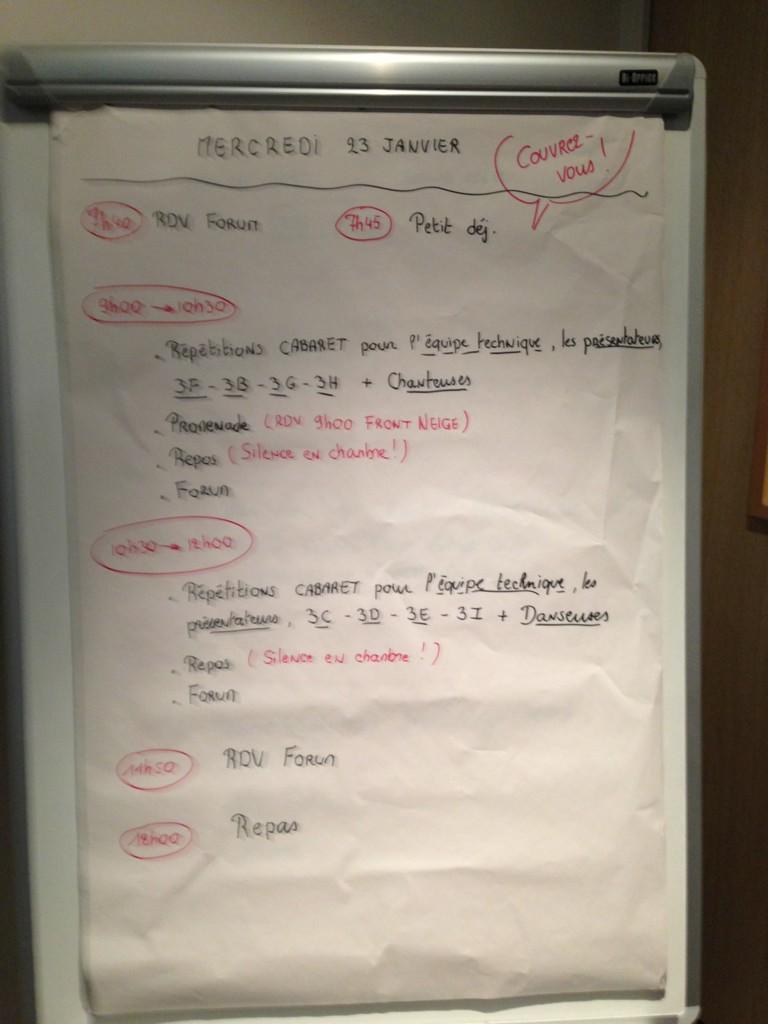 BI-OFFICE
MERCREDI 23 JANVIER
COUVREZ-
VOUS!
7h40 RDV FORUM 7h45 Petit déj.
9h00 → 10h30
. Répétitions CABARET pour l'équipe technique, les présentateurs,
3F - 3B - 3G - 3H + Chanteuses
. Promenade (RDV 9h00 FRONT NEIGE)
. Repos (Silence en chambre!)
. Forum
10h30 → 12h00
. Répétitions CABARET pour l'équipe technique, les
présentateurs, 3C - 3D - 3E - 3I + Danseuses
. Repos (Silence en chambre!)
. Forum
11h50 RDV Forum
12h00 Repas